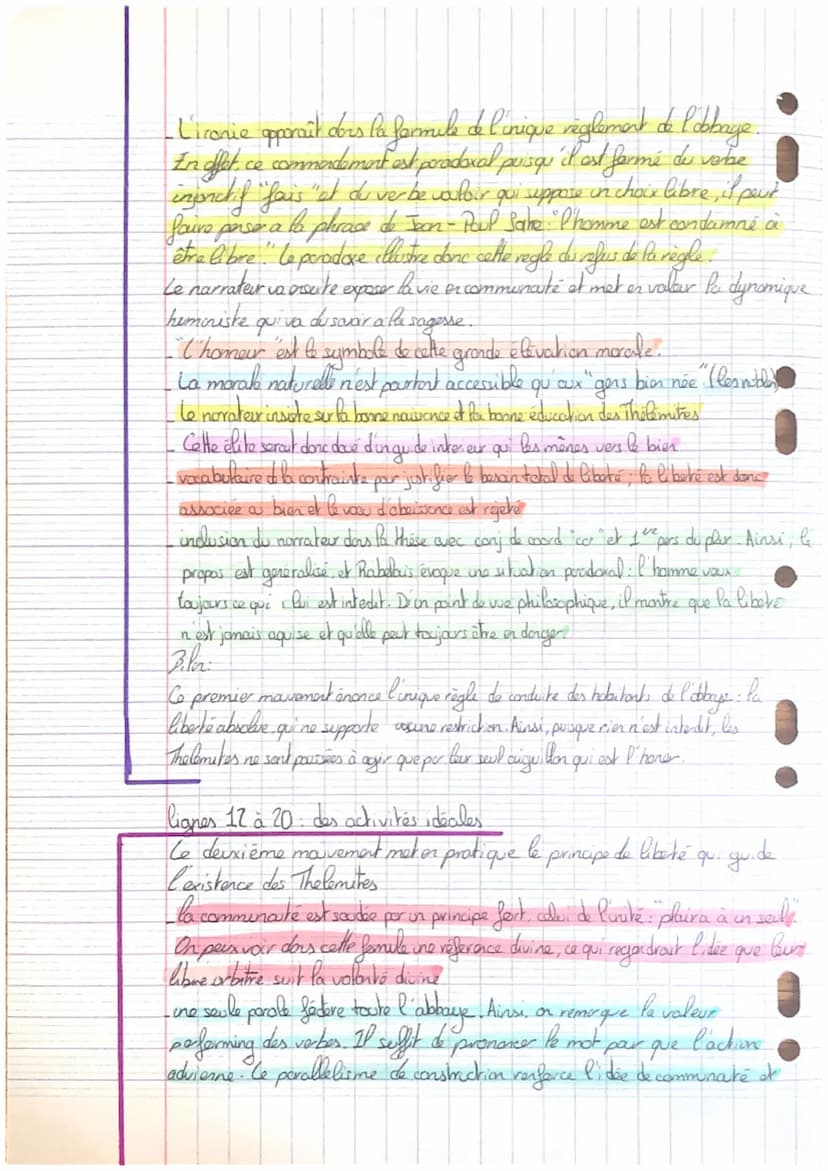 _ L'ironie apparaît dans la formule de l'unique règlement de l'abbaye.
En effet, ce commandement est paradoxal puisqu'il est formé du verbe
injonctif "fais" et du verbe vouloir qui suppose un choix libre, il peut
faire penser a la phrase de Jean-Paul Satre : "l'homme est condamné à
être libre". Le paradoxe illustre donc cette regle du refus de la règle.
Le narrateur va ensuite exposer la vie en communauté et met en valeur la dynamique
humaniste qui va du savoir a la sagesse.
_ "L'honneur" est le symbole de cette grande élévation morale.
_ La morale naturelle n'est pourtant accessible qu'aux "gens bien née" (les nobles)
Le narrateur insiste sur la bonne naissance et la bonne éducation des Thélémites
_ Cette élite serait donc doué d'un guide interieur qui les mènes vers le bien
_ vocabulaire d la contrainte pour justifier le besoin total de liberté, la liberté est donc
associée au bien et le voeu d'obeissance est rejeté
_ inclusion du narrateur dans la thèse avec conj de coord "car" et 1ere pers du plur. Ainsi, le
propos est generalisé, et Rabelais évoque une situation paradoxal : l'homme veux
toujours ce qui lui est interdit. D'un point de vue philosophique, il montre que la liberté
n'est jamais aquise et qu'elle peut toujours être en danger.
Bilan :
Ce premier mouvement énonce l'unique règle de conduite des habitants de l'abbaye : la
liberté absolue, qui ne supporte aucune restriction. Ainsi, puisque rien n'est interdit, les
Thelemites ne sont poussées à agir que par leur seul aiguillon qui est l'honer.
lignes 12 à 20 : des activités idéales
Le deuxième mouvement met en pratique le principe de liberté qui guide
l'existence des Thelemites
_ la communauté est soudée par un principe fort, celui de l'unité : "plaira à un seul".
On peux voir dans cette formule une référence divine, ce qui regardrait l'idée que leur
libre arbitre suit la volonté divine
_ une seule parole fédère toute l'abbaye. Ainsi, on remarque la valeur
performing des verbes. Il suffit de prononcer le mot pour que l'action
advienne. Le parallelisme de construction renforce l'idée de communauté et